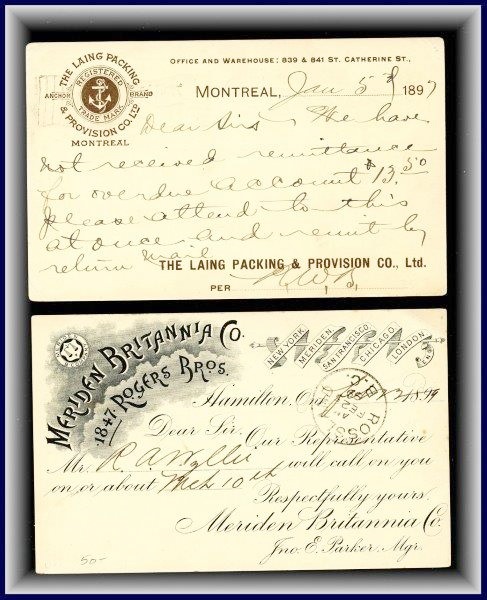 THE LAING PACKING
& PROVISION CO. LTD
REGISTERED
TRADE MARK
ANCHOR BRAND
MONTREAL
OFFICE AND WAREHOUSE: 839 & 841 ST. CATHERINE ST.,
MONTREAL, Jan 5th 1897
Dear Sirs We have
not received remittance
for overdue account $13.50
please attend to this
at once and remit by
return mail
THE LAING PACKING & PROVISION CO., Ltd.
PER
MERIDEN BRITANNIA CO.
1847. ROGERS BROS.
NEW YORK, MERIDEN, SAN FRANCISCO, CHICAGO, LONDON
Hamilton, Ont. 1899
ROSSL
B.C.
Dear Sir. Our Representative
Mr. R. A. Wyllie will call on you
on or about Mch 10th
Respectfully yours.
Meriden Britannia Co.
Jno. E. Parker, Mgr.
50-